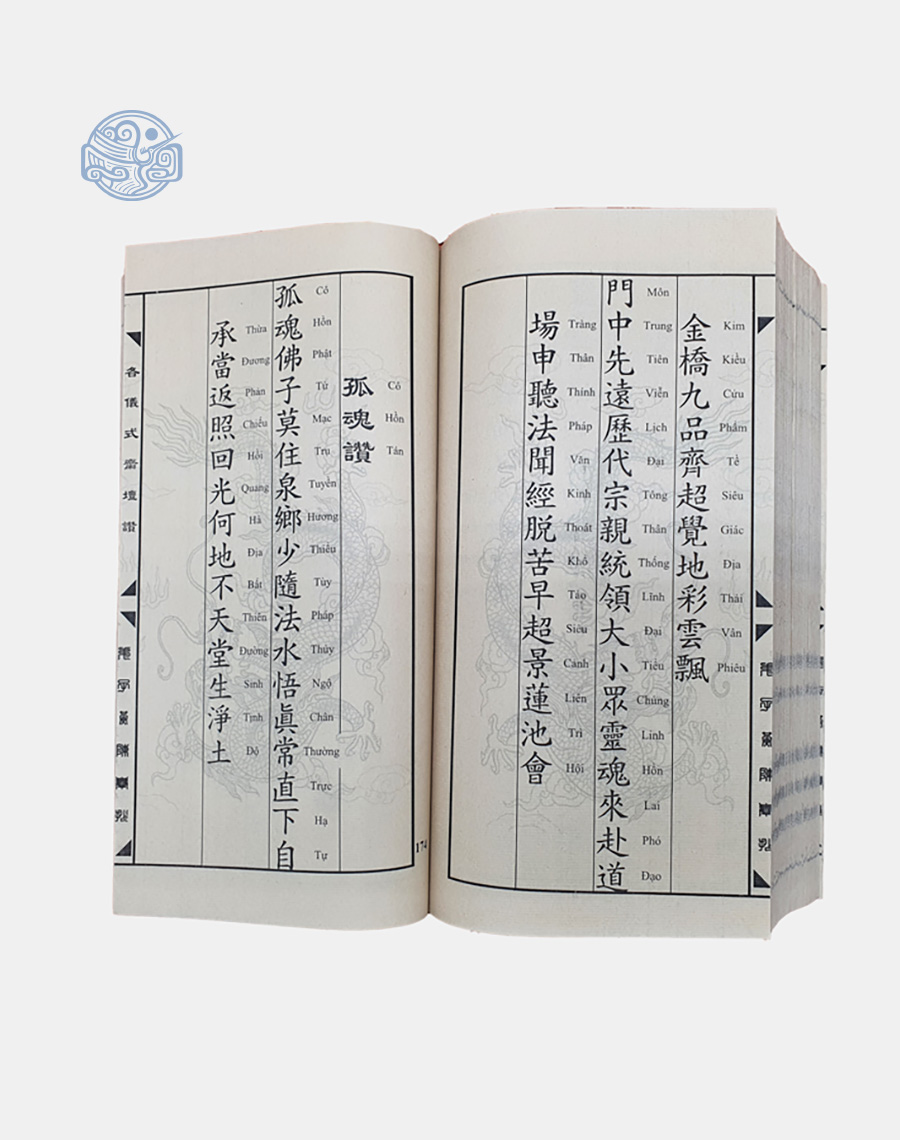 金橋九品齊超覺地彩雲飄
Kim Kiều Cửu Phẩm Tề Siêu Giác Địa Thái Vân Phiêu
門中先遠歷代宗親統領大小眾靈魂來赴道
Môn Trung Tiên Viễn Lịch Đại Tông Thân Thống Lĩnh Đại Tiểu Chúng Linh Hồn Lai Phó Đạo
場申聽法聞經脱苦早超景蓮池會
Tràng Thân Thính Pháp Văn Kinh Thoát Khổ Tảo Siêu Cảnh Liên Trì Hội
孤魂讚
Cô Hồn Tán
孤魂佛子莫住泉鄉少隨法水悟眞常直下自
Cô Hồn Phật Tử Mạc Trụ Tuyền Hương Thiểu Tùy Pháp Thủy Ngộ Chân Thường Trực Hạ Tự
承當返照回光何地不天堂生淨土
Thừa Đương Phản Chiếu Hồi Quang Hà Địa Bất Thiên Đường Sinh Tịnh Độ
各儀式齋壇讚
174